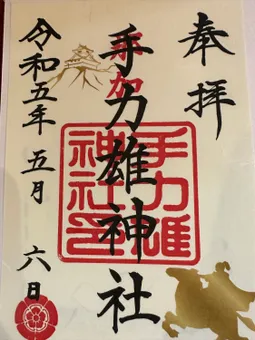 奉拝
手力雄神社
令和五年五月六日
手力雄
神社印